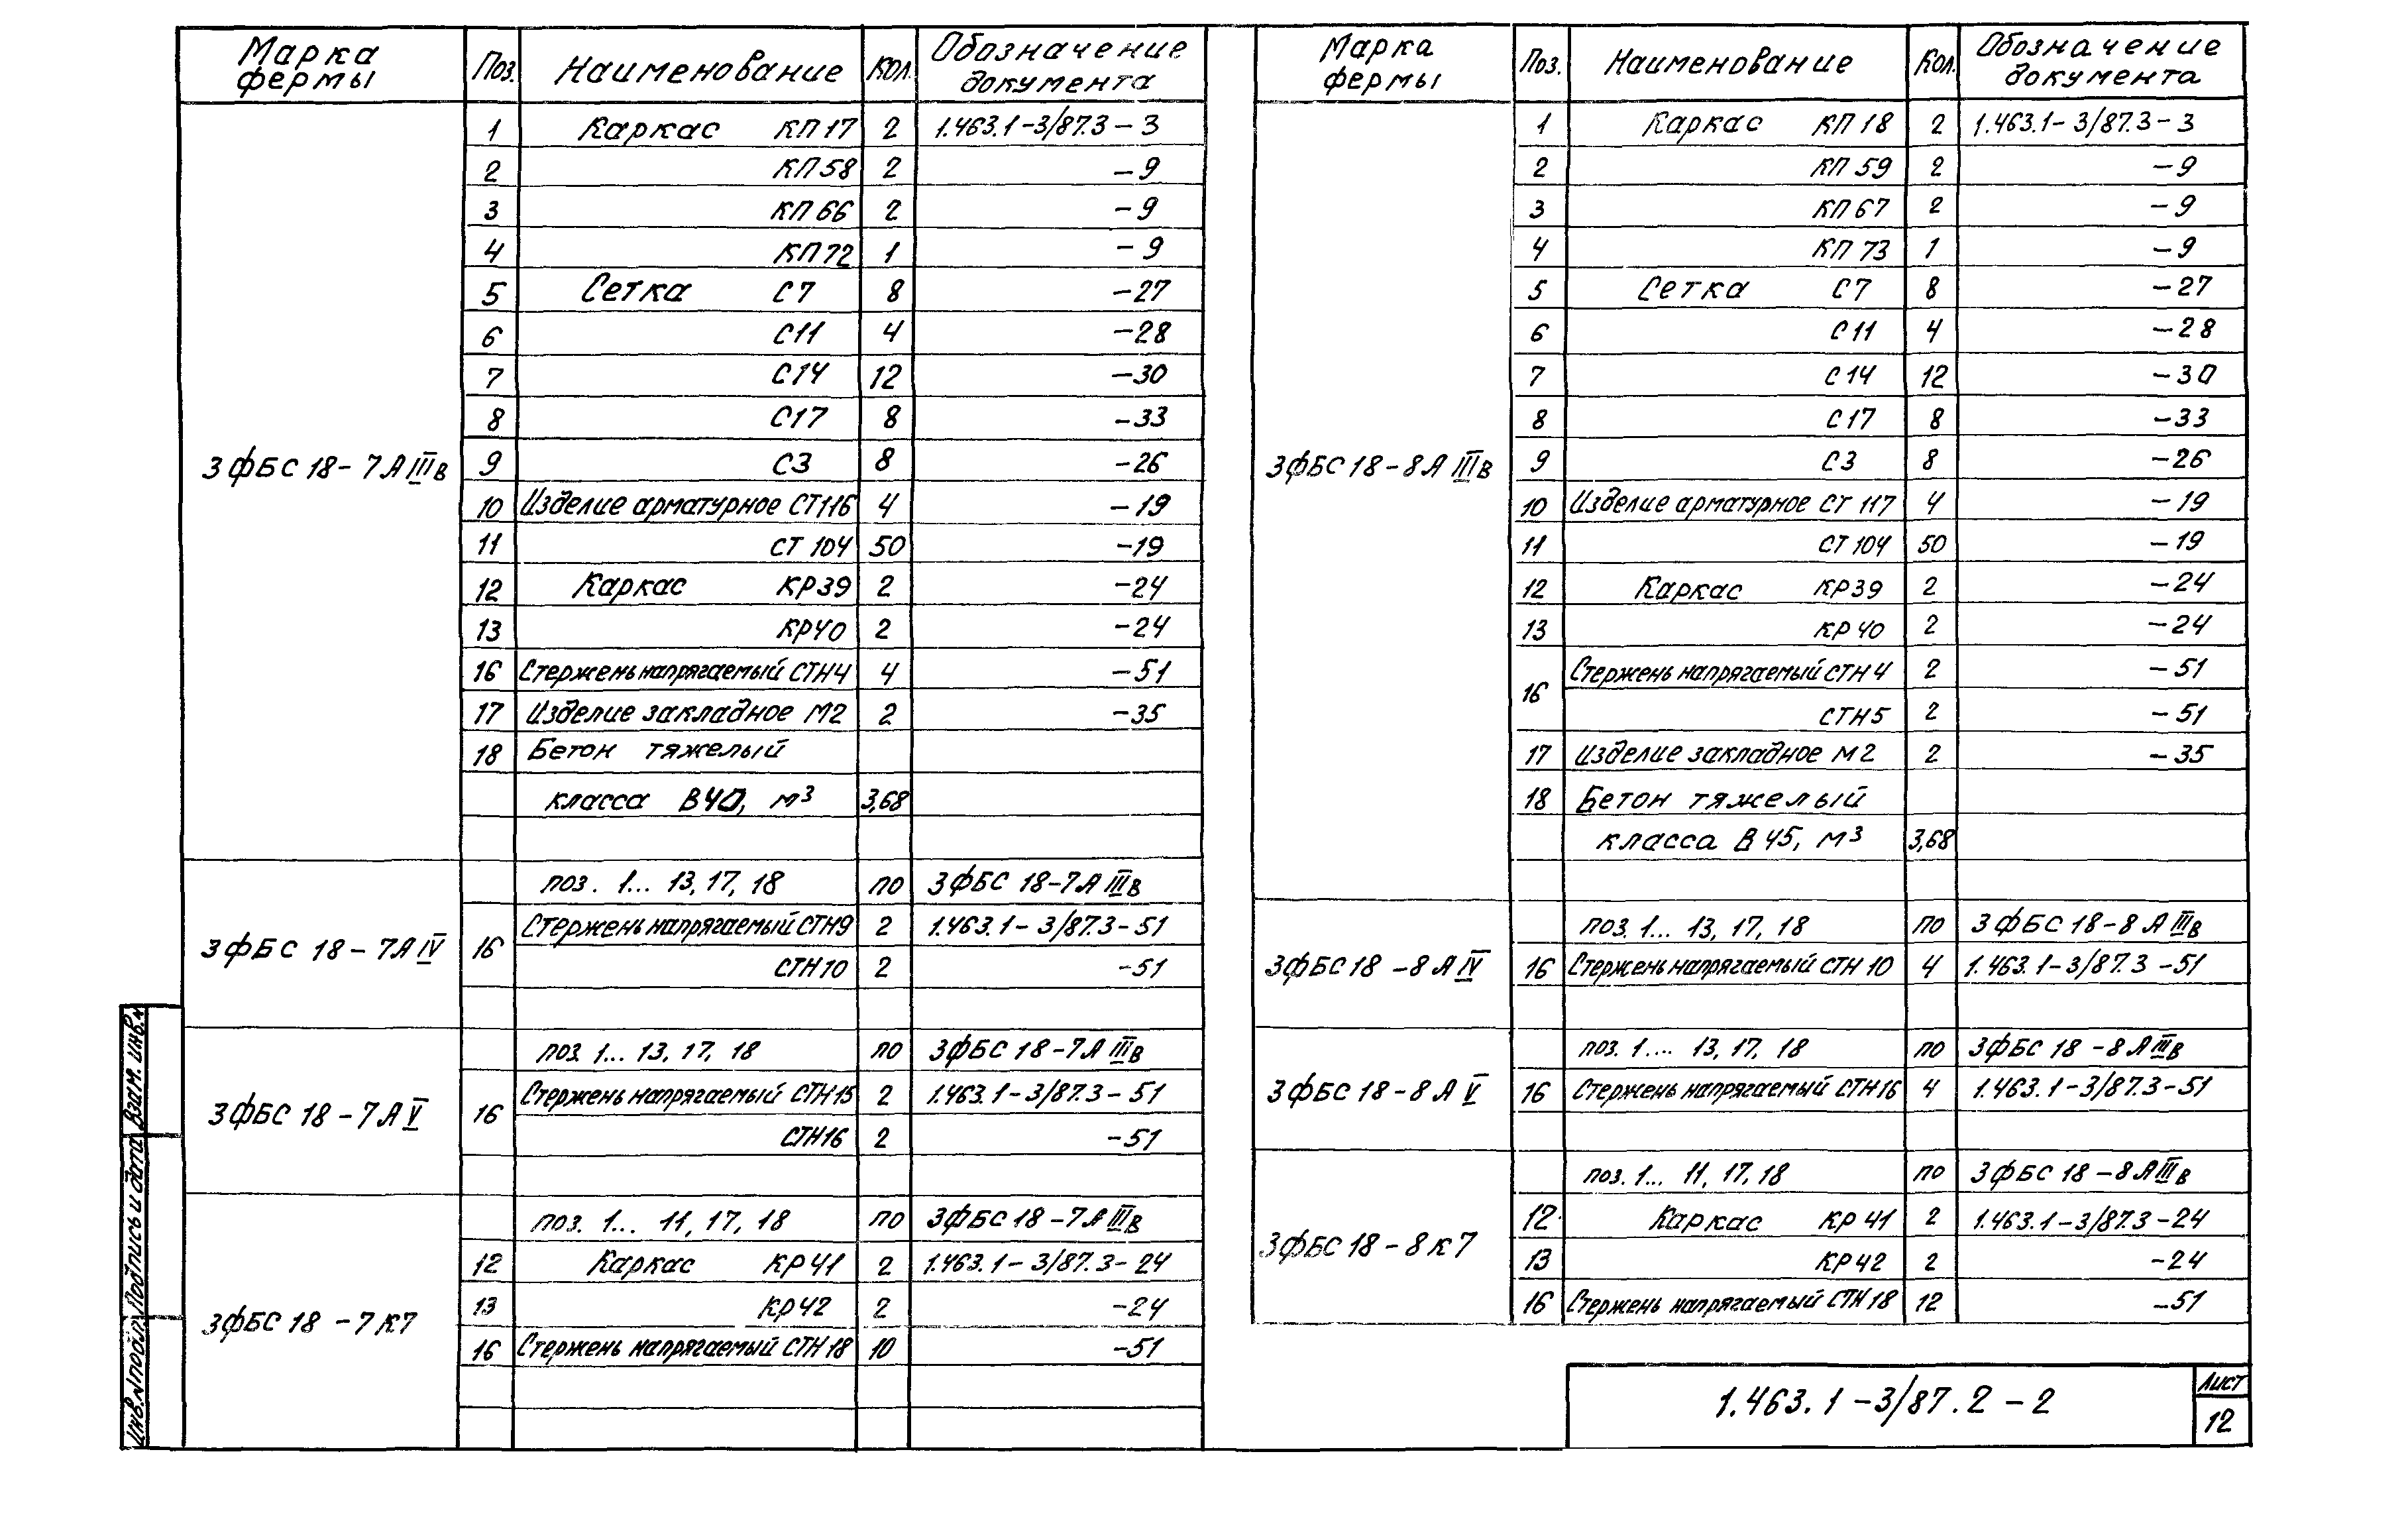 Марка фермы Поз. Наименование Кол. Обозначение документа
1 Каркас КП17 2 1.463.1-3/87.3-3
2 КП58 2 -9
3 КП66 2 -9
4 КП72 1 -9
5 Сетка С7 8 -27
6 С11 4 -28
7 С14 12 -30
8 С17 8 -33
3ФБС 18-7АIIIв 9 С3 8 -26
10 Изделие арматурное СТ116 4 -19
11 СТ104 50 -19
12 Каркас КР39 2 -24
13 КР40 2 -24
16 Стержень напрягаемый СТН4 4 -51
17 Изделие закладное М2 2 -35
18 Бетон тяжелый
класса В40, м³ 3,68
поз. 1... 13, 17, 18 по 3ФБС 18-7АIIIв
3ФБС 18-7АIV 16 Стержень напрягаемый СТН9 2 1.463.1-3/87.3-51
СТН10 2 -51
поз. 1... 13, 17, 18 по 3ФБС 18-7АIIIв
3ФБС 18-7АV 16 Стержень напрягаемый СТН15 2 1.463.1-3/87.3-51
СТН16 2 -51
поз. 1... 11, 17, 18 по 3ФБС 18-7АIIIв
12 Каркас КР41 2 1.463.1-3/87.3-24
3ФБС 18-7К7 13 КР42 2 -24
16 Стержень напрягаемый СТН18 10 -51
Марка фермы Поз. Наименование Кол. Обозначение документа
1 Каркас КП18 2 1.463.1-3/87.3-3
2 КП59 2 -9
3 КП67 2 -9
4 КП73 1 -9
5 Сетка С7 8 -27
6 С11 4 -28
7 С14 12 -30
8 С17 8 -33
3ФБС 18-8АIIIв 9 С3 8 -26
10 Изделие арматурное СТ117 4 -19
11 СТ104 50 -19
12 Каркас КР39 2 -24
13 КР40 2 -24
16 Стержень напрягаемый СТН4 2 -51
СТН5 2 -51
17 Изделие закладное М2 2 -35
18 Бетон тяжелый
класса В45, м³ 3,68
поз. 1... 13, 17, 18 по 3ФБС 18-8АIIIв
3ФБС 18-8АIV 16 Стержень напрягаемый СТН10 4 1.463.1-3/87.3-51
поз. 1.... 13, 17, 18 по 3ФБС 18-8АIIIв
3ФБС 18-8АV 16 Стержень напрягаемый СТН16 4 1.463.1-3/87.3-51
поз. 1... 11, 17, 18 по 3ФБС 18-8АIIIв
12 Каркас КР41 2 1.463.1-3/87.3-24
3ФБС 18-8К7 13 КР42 2 -24
16 Стержень напрягаемый СТН18 12 -51
1.463.1-3/87.2-2
Лист
12
Взам. инв. №
Подпись и дата
Инв. № подл.